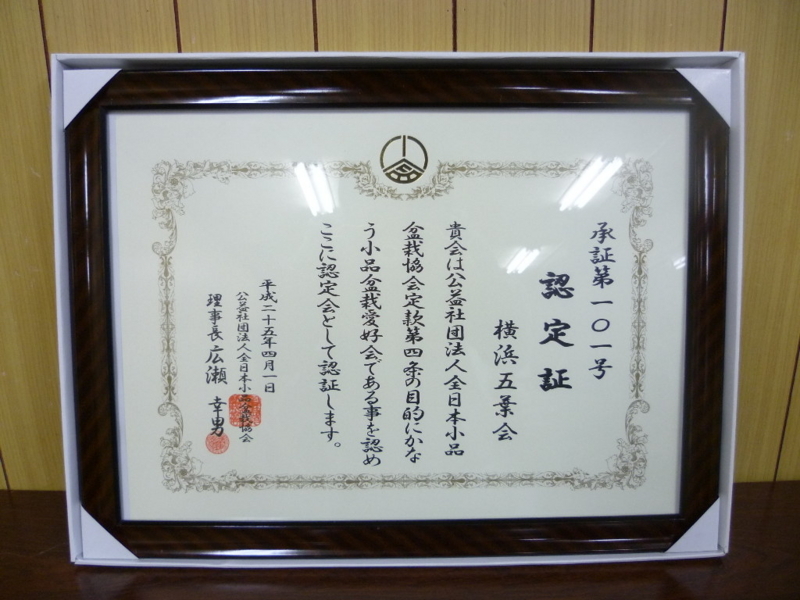 承証第一〇一号
認定証
横浜五葉会
貴会は公益社団法人全日本小品
盆栽協会定款第四条の目的にかな
う小品盆栽愛好会である事を認め
ここに認定会として認証します。
平成二十五年四月一日
公益社団法人全日本小品盆栽協会
理事長 広瀬 幸男